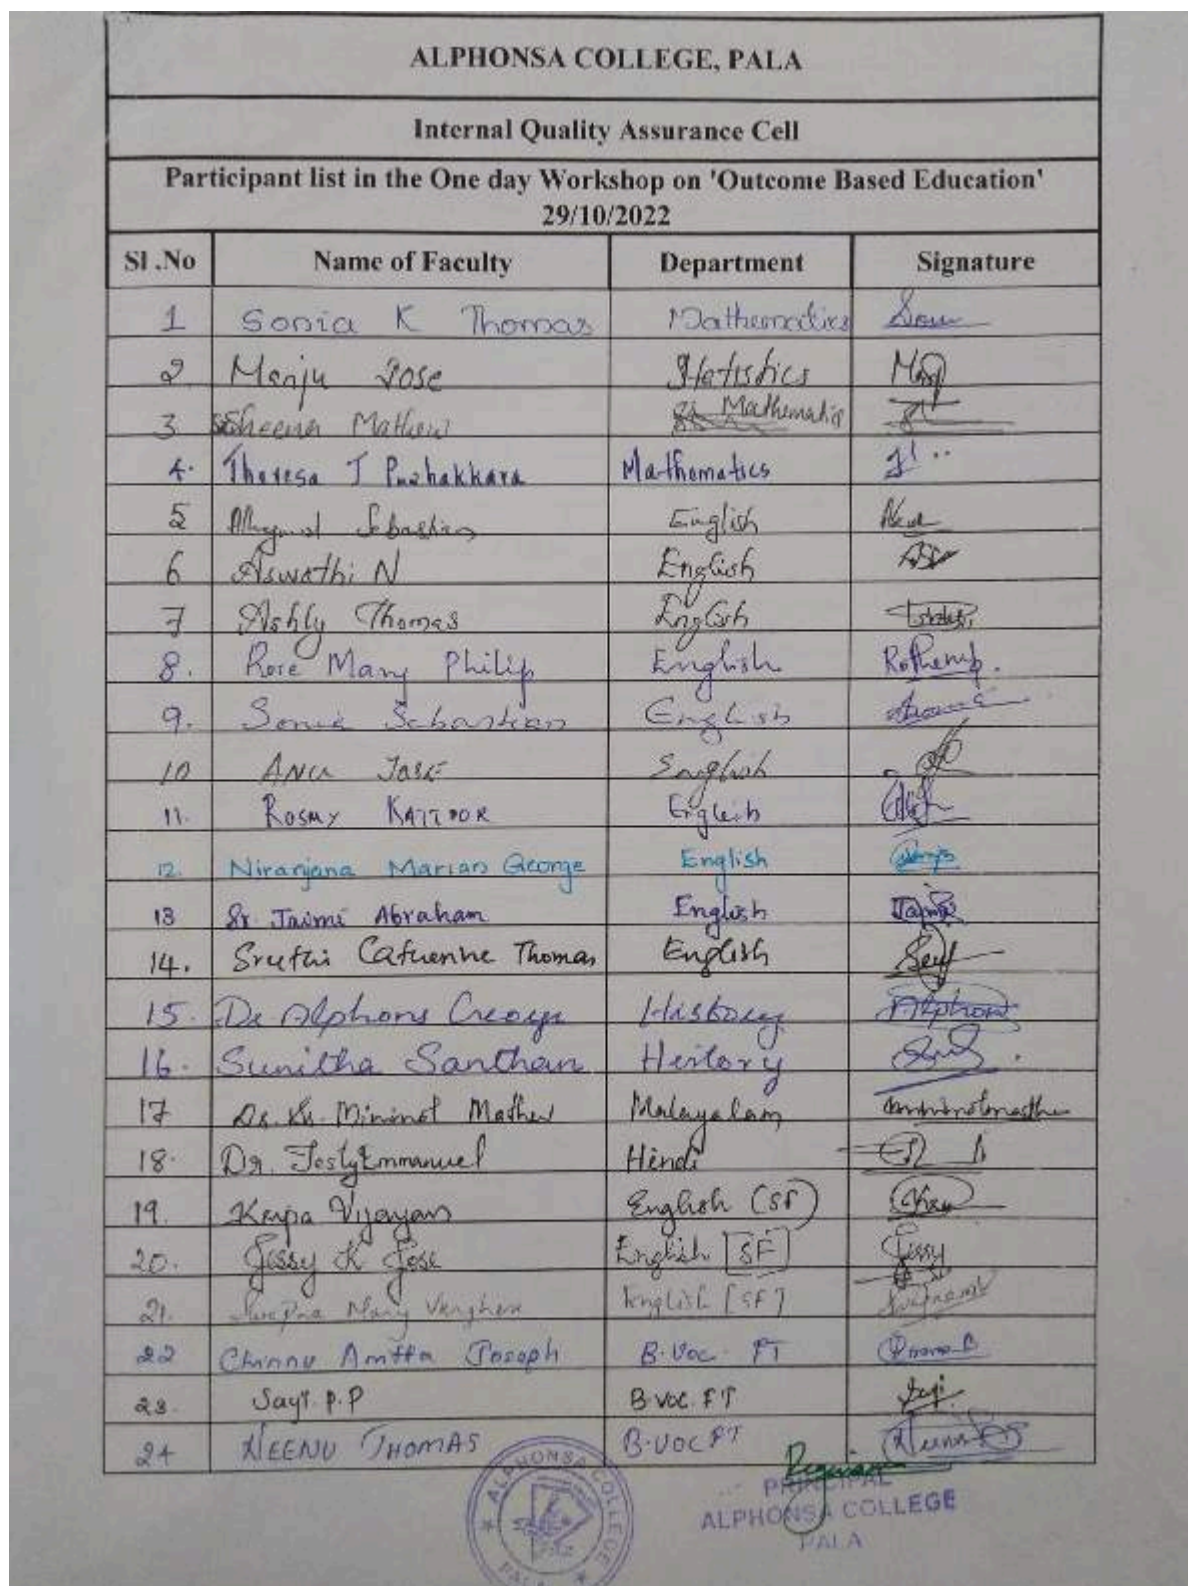 ALPHONSA COLLEGE, PALA
Internal Quality Assurance Cell
Participant list in the One day Workshop on 'Outcome Based Education'
29/10/2022
Sl .No Name of Faculty Department Signature
1 Sonia K Thomas Mathematics
2 Manju Jose Statistics
3 Sheena Mathew Mathematics
4. Theresa J Puzhakkara Mathematics
5 Sebastian English
6 Aswathi N English
7 Ashly Thomas English
8. Rose Mary Philip English
9. Sonia Sebastian English
10 ANU JOSE English
11. ROSMY KATTOOR English
12. Niranjana Marian George English
13 Sr. Jaimi Abraham English Jaimi
14. Sruthi Catherine Thomas English
15. Dr Alphons George History Alphons
16. Sunitha Santhan History
17 Dr. Sr. Minimol Mathew Malayalam
18. Dr. Josly Emmanuel Hindi
19. Krupa Vijayan English (SF)
20. Jessy K Jose English [SF] Jessy
21. Swapna Mary Varghese English [SF]
22 Chinnu Anitta Joseph B.Voc FT
23. Sayi. P.P B.VOC. FT
24 NEENU THOMAS B.VOC FT Neenu
ALPHONSA COLLEGE
PALA
PRINCIPAL
ALPHONSA COLLEGE
PALA